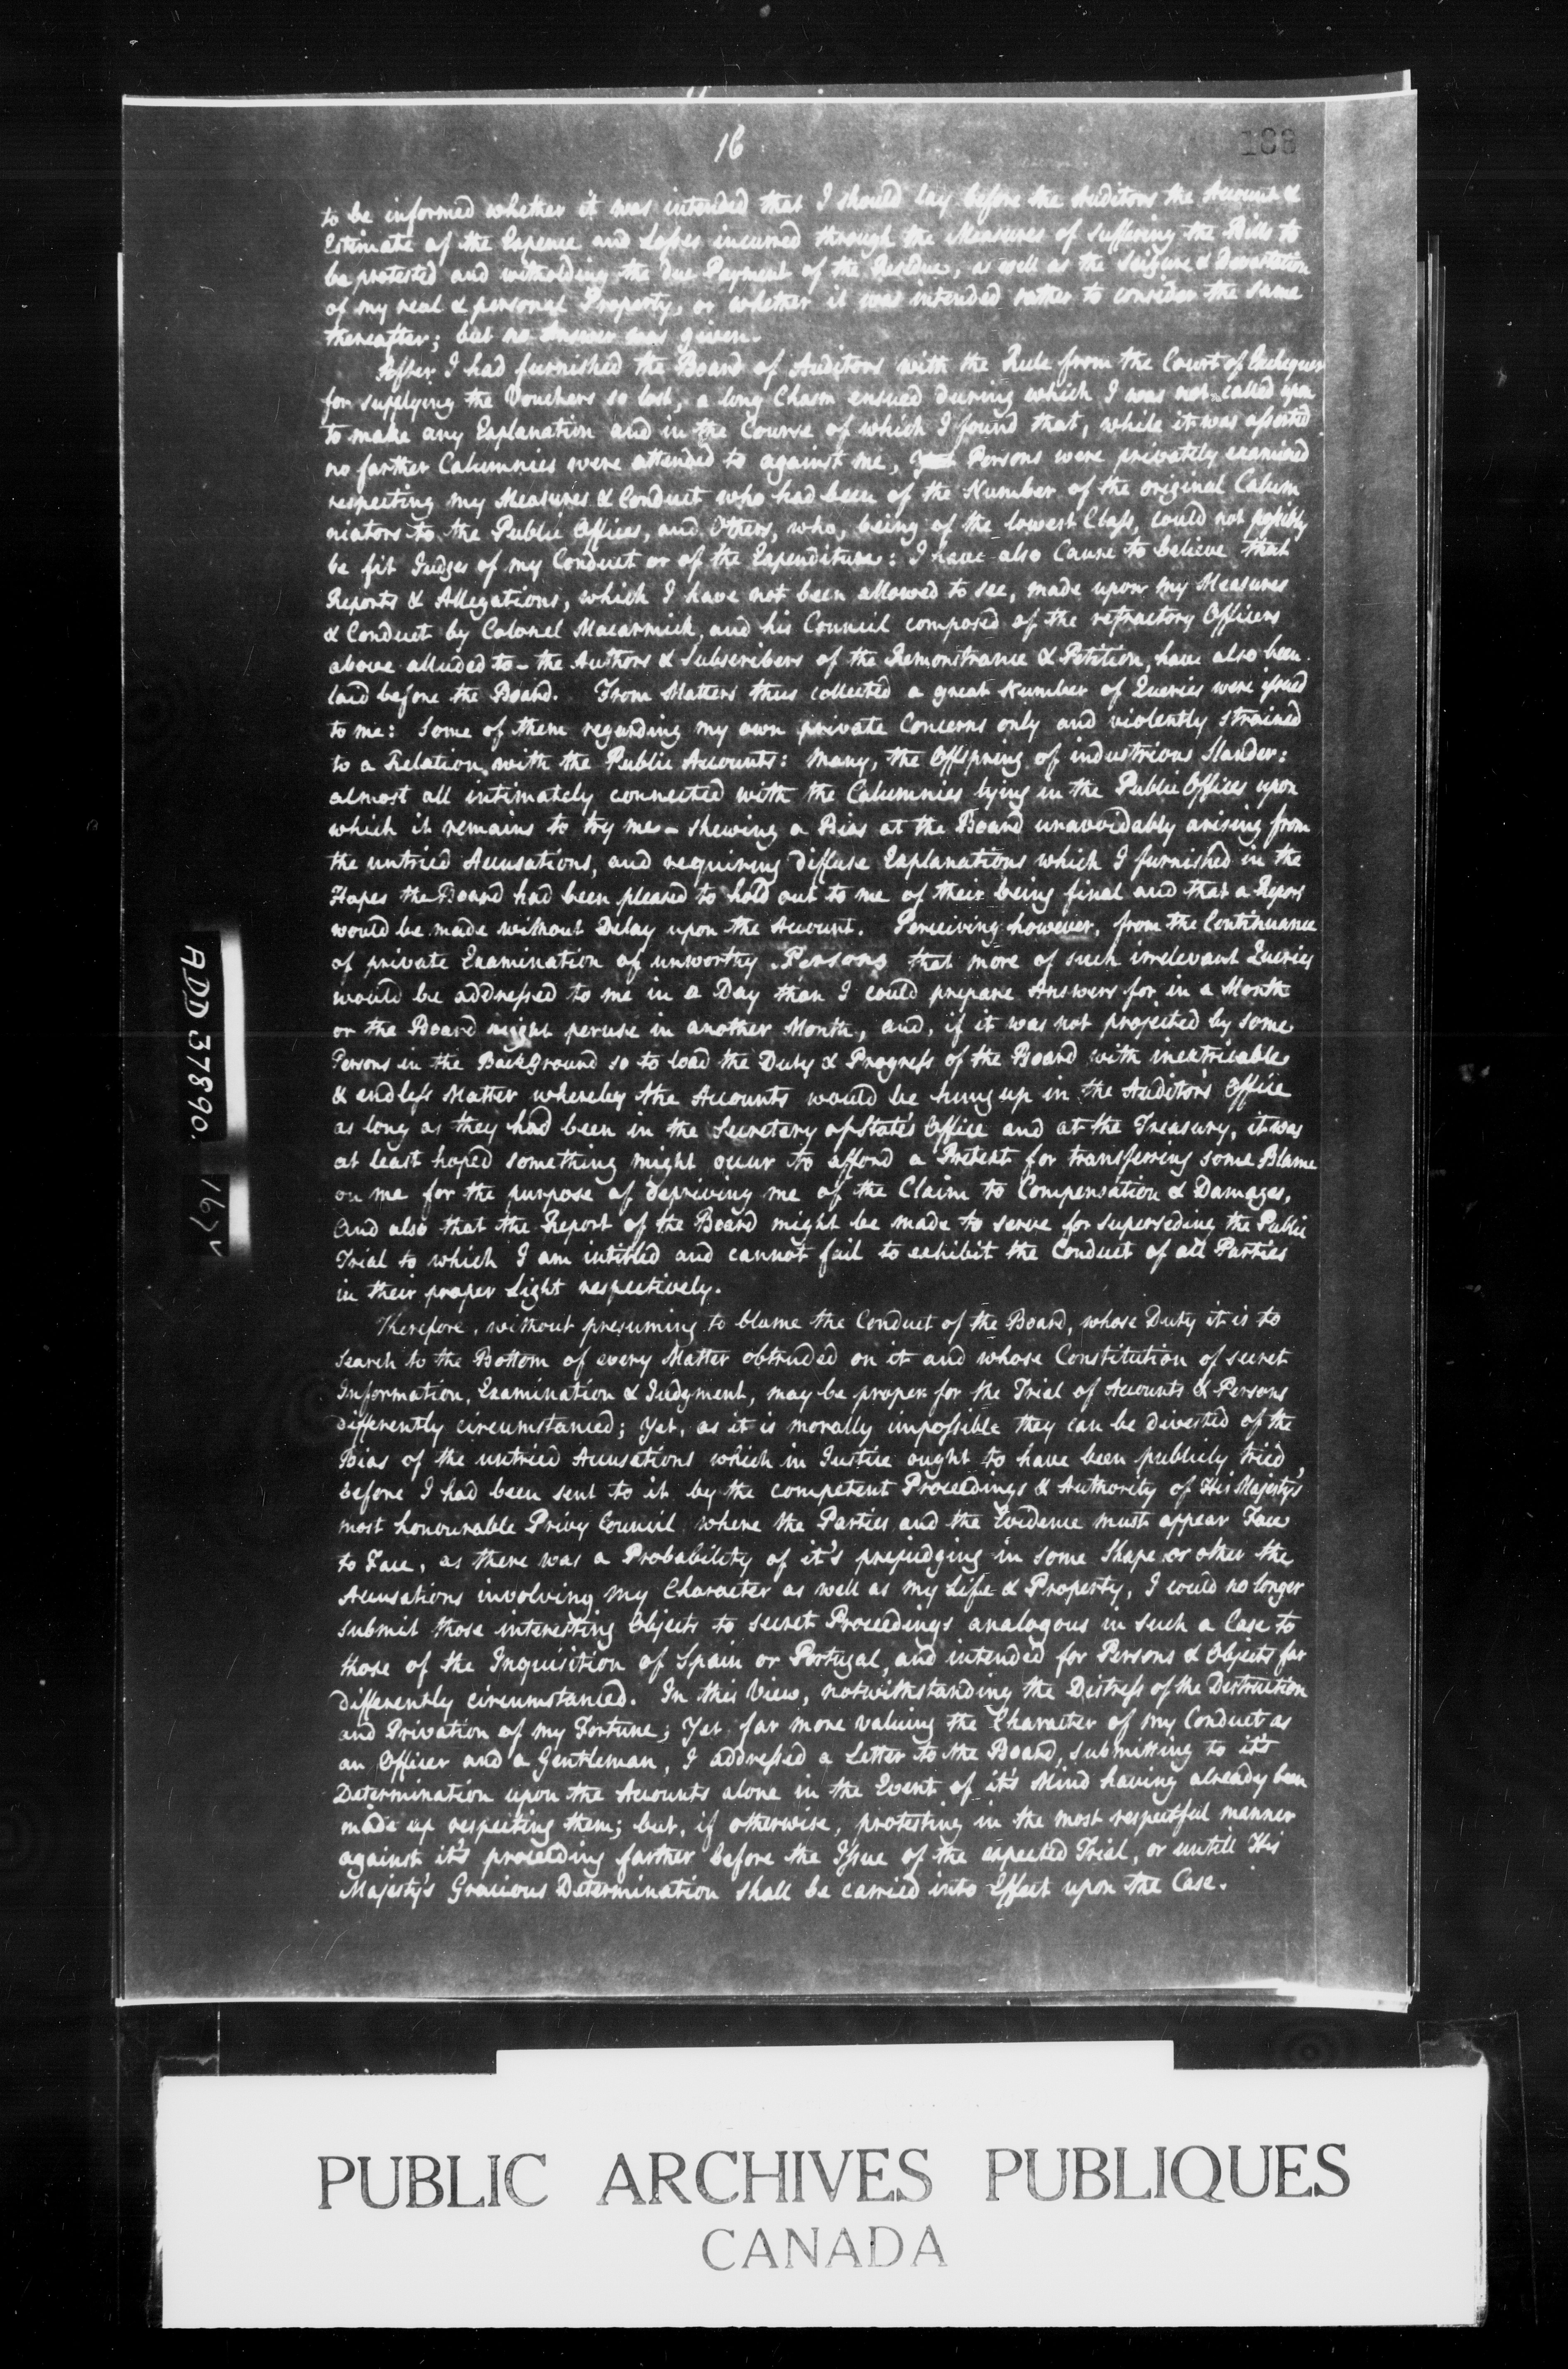 16
188
to be informed whether it was intended that I should lay before the Auditors the Account &
Estimate of the Expence and Losses incurred through the Measures of suffering the Bills to
be protested and witholding the due Payment of the Residue, as well as the Seizure & Devastation
of my real & personal Property, or whether it was intended rather to consider the same
thereafter; but no Answer was given.
After I had furnished the Board of Auditors with the Rule from the Court of Exchequer
for supplying the Vouchers so lost, a long Chasm ensued during which I was not called upon
to make any Explanation and in the Course of which I found that, while it was asserted
no farther Calumnies were attended to against me, Persons were privately examined
respecting my Measures & Conduct who had been of the Number of the original Calum
niators to the Public Offices, and Others, who, being of the lowest Class, could not possibly
be fit Judges of my Conduct or of the Expenditure: I have also Cause to believe that
Reports & Allegations, which I have not been allowed to see, made upon my Measures
& Conduct by Colonel Macarmick, and his Council composed of the refractory Officers
above alluded to - the Authors & Subscribers of the Remonstrance & Petition, have also been
laid before the Board. From Matters thus collected a great Number of Queries were issued
to me: Some of them regarding my own private Concerns only and violently strained
to a Relation with the Public Accounts: Many, the Offspring of industrious Slander:
almost all intimately connected with the Calumnies lying in the Public Offices upon
which it remains to try me - shewing a Bias at the Board unavoidably arising from
the untried Accusations, and requiring diffuse Explanations which I furnished in the
Hopes the Board had been pleased to hold out to me of their being final and that a Report
would be made without Delay upon the Account. Perceiving however, from the Continuance
of private Examination of unworthy Persons that more of such irrelevant Queries
would be addressed to me in a Day than I could prepare Answers for in a Month
or the Board might peruse in another Month, and, if it was not projected by some
Persons in the BackGround so to load the Duty & Progress of the Board with inextricable
& endless Matter whereby the Accounts would be hung up in the Auditor's Office
as long as they had been in the Secretary of State's Office and at the Treasury, it was
at least hoped something might occur to afford a Pretext for transferring some Blame
on me for the purpose of depriving me of the Claim to Compensation & Damages,
and also that the Report of the Board might be made to serve for superseding the Public
Trial to which I am intitled and cannot fail to exhibit the Conduct of all Parties
in their proper Light respectively.
Therefore, without presuming to blame the Conduct of the Board, whose Duty it is to
search to the Bottom of every Matter obtruded on it and whose Constitution of secret
Information, Examination & Judgment, may be proper for the Trial of Accounts & Persons
differently circumstanced; Yet, as it is morally impossible they can be divested of the
Bias of the untried Accusations which in Justice ought to have been publicly tried,
before I had been sent to it by the competent Proceedings & Authority of His Majesty's
most honourable Privy Council where the Parties and the Evidence must appear Face
to Face, as there was a Probability of it's prejudging in some Shape or other the
Accusations involving my Character as well as my Life & Property, I could no longer
submit those interesting Objects to secret Proceedings analogous in such a Case to
those of the Inquisition of Spain or Portugal, and intended for Persons & Objects far
differently circumstanced. In this View, notwithstanding the Distress of the Destruction
and Privation of my Fortune; Yet far more valuing the Character of my Conduct as
an Officer and a Gentleman, I addressed a Letter to the Board, submitting to it's
Determination upon the Accounts alone in the Event of it's Mind having already been
made up respecting them; but, if otherwise, protesting in the most respectful manner
against it's proceeding farther before the Issue of the expected Trial, or untill His
Majesty's Gracious Determination shall be carried into Effect upon the Case.
ADD 37890.
167v
PUBLIC ARCHIVES PUBLIQUES
CANADA